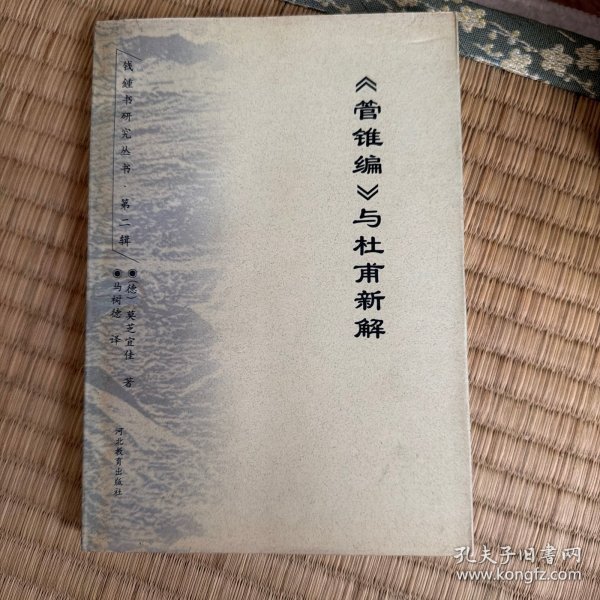 《管锥编》与杜甫新解
钱锺书研究丛书·第二辑
◉(德)莫芝宜佳 著
◉马树德 译
河北教育出版社
孔夫子旧书网
www.kongfz.com